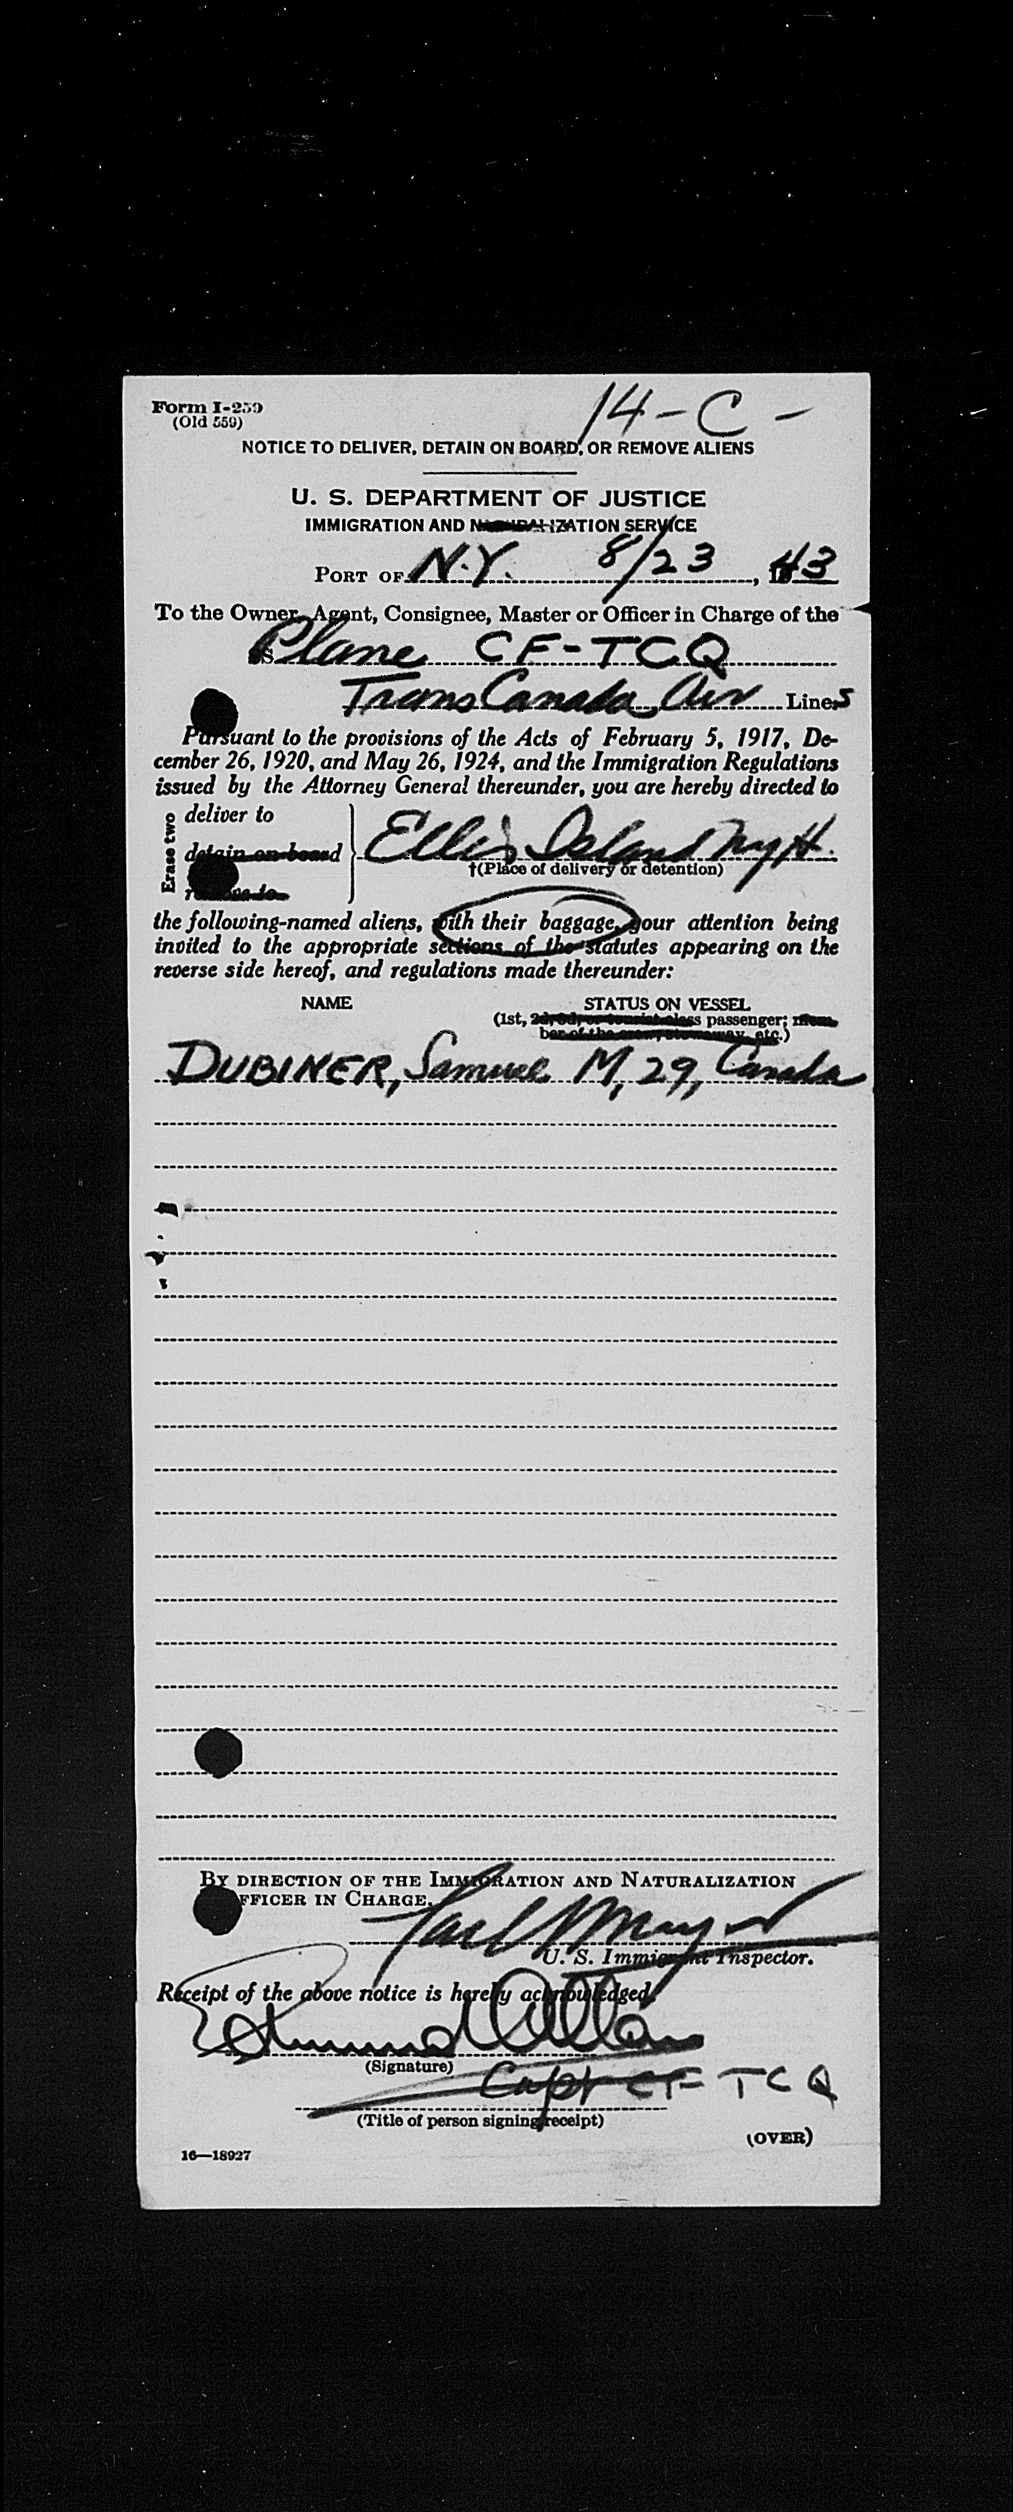 14-C-
Form I-259
(Old 559)
NOTICE TO DELIVER, DETAIN ON BOARD, OR REMOVE ALIENS
U. S. DEPARTMENT OF JUSTICE
IMMIGRATION AND NATURALIZATION SERVICE
PORT OF N.Y. 8/23, 43
To the Owner, Agent, Consignee, Master or Officer in Charge of the
SS Plane CF-TCQ
Trans Canada Air Lines
Pursuant to the provisions of the Acts of February 5, 1917, De-
cember 26, 1920, and May 26, 1924, and the Immigration Regulations
issued by the Attorney General thereunder, you are hereby directed to
Erase two
deliver to
detain on board
remove to
Ellis Island NYH.
†(Place of delivery or detention)
the following-named aliens, with their baggage, your attention being
invited to the appropriate sections of the statutes appearing on the
reverse side hereof, and regulations made thereunder:
NAME STATUS ON VESSEL
(1st, 2d, 3d, or tourist class passenger; mem-
ber of the crew, stowaway, etc.)
DUBINER, Samuel M, 29, Canada
BY DIRECTION OF THE IMMIGRATION AND NATURALIZATION
OFFICER IN CHARGE.
U. S. Immigrant Inspector.
Receipt of the above notice is hereby acknowledged.
(Signature)
Capt CF-TCQ
(Title of person signing receipt)
(OVER)
16—18927